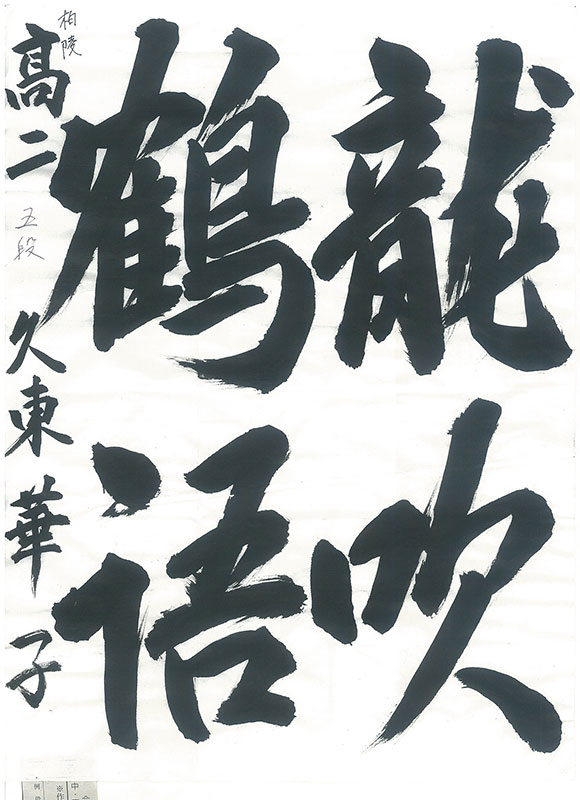 龍吹
鶴語
柏陵
高二 五段 久東華子